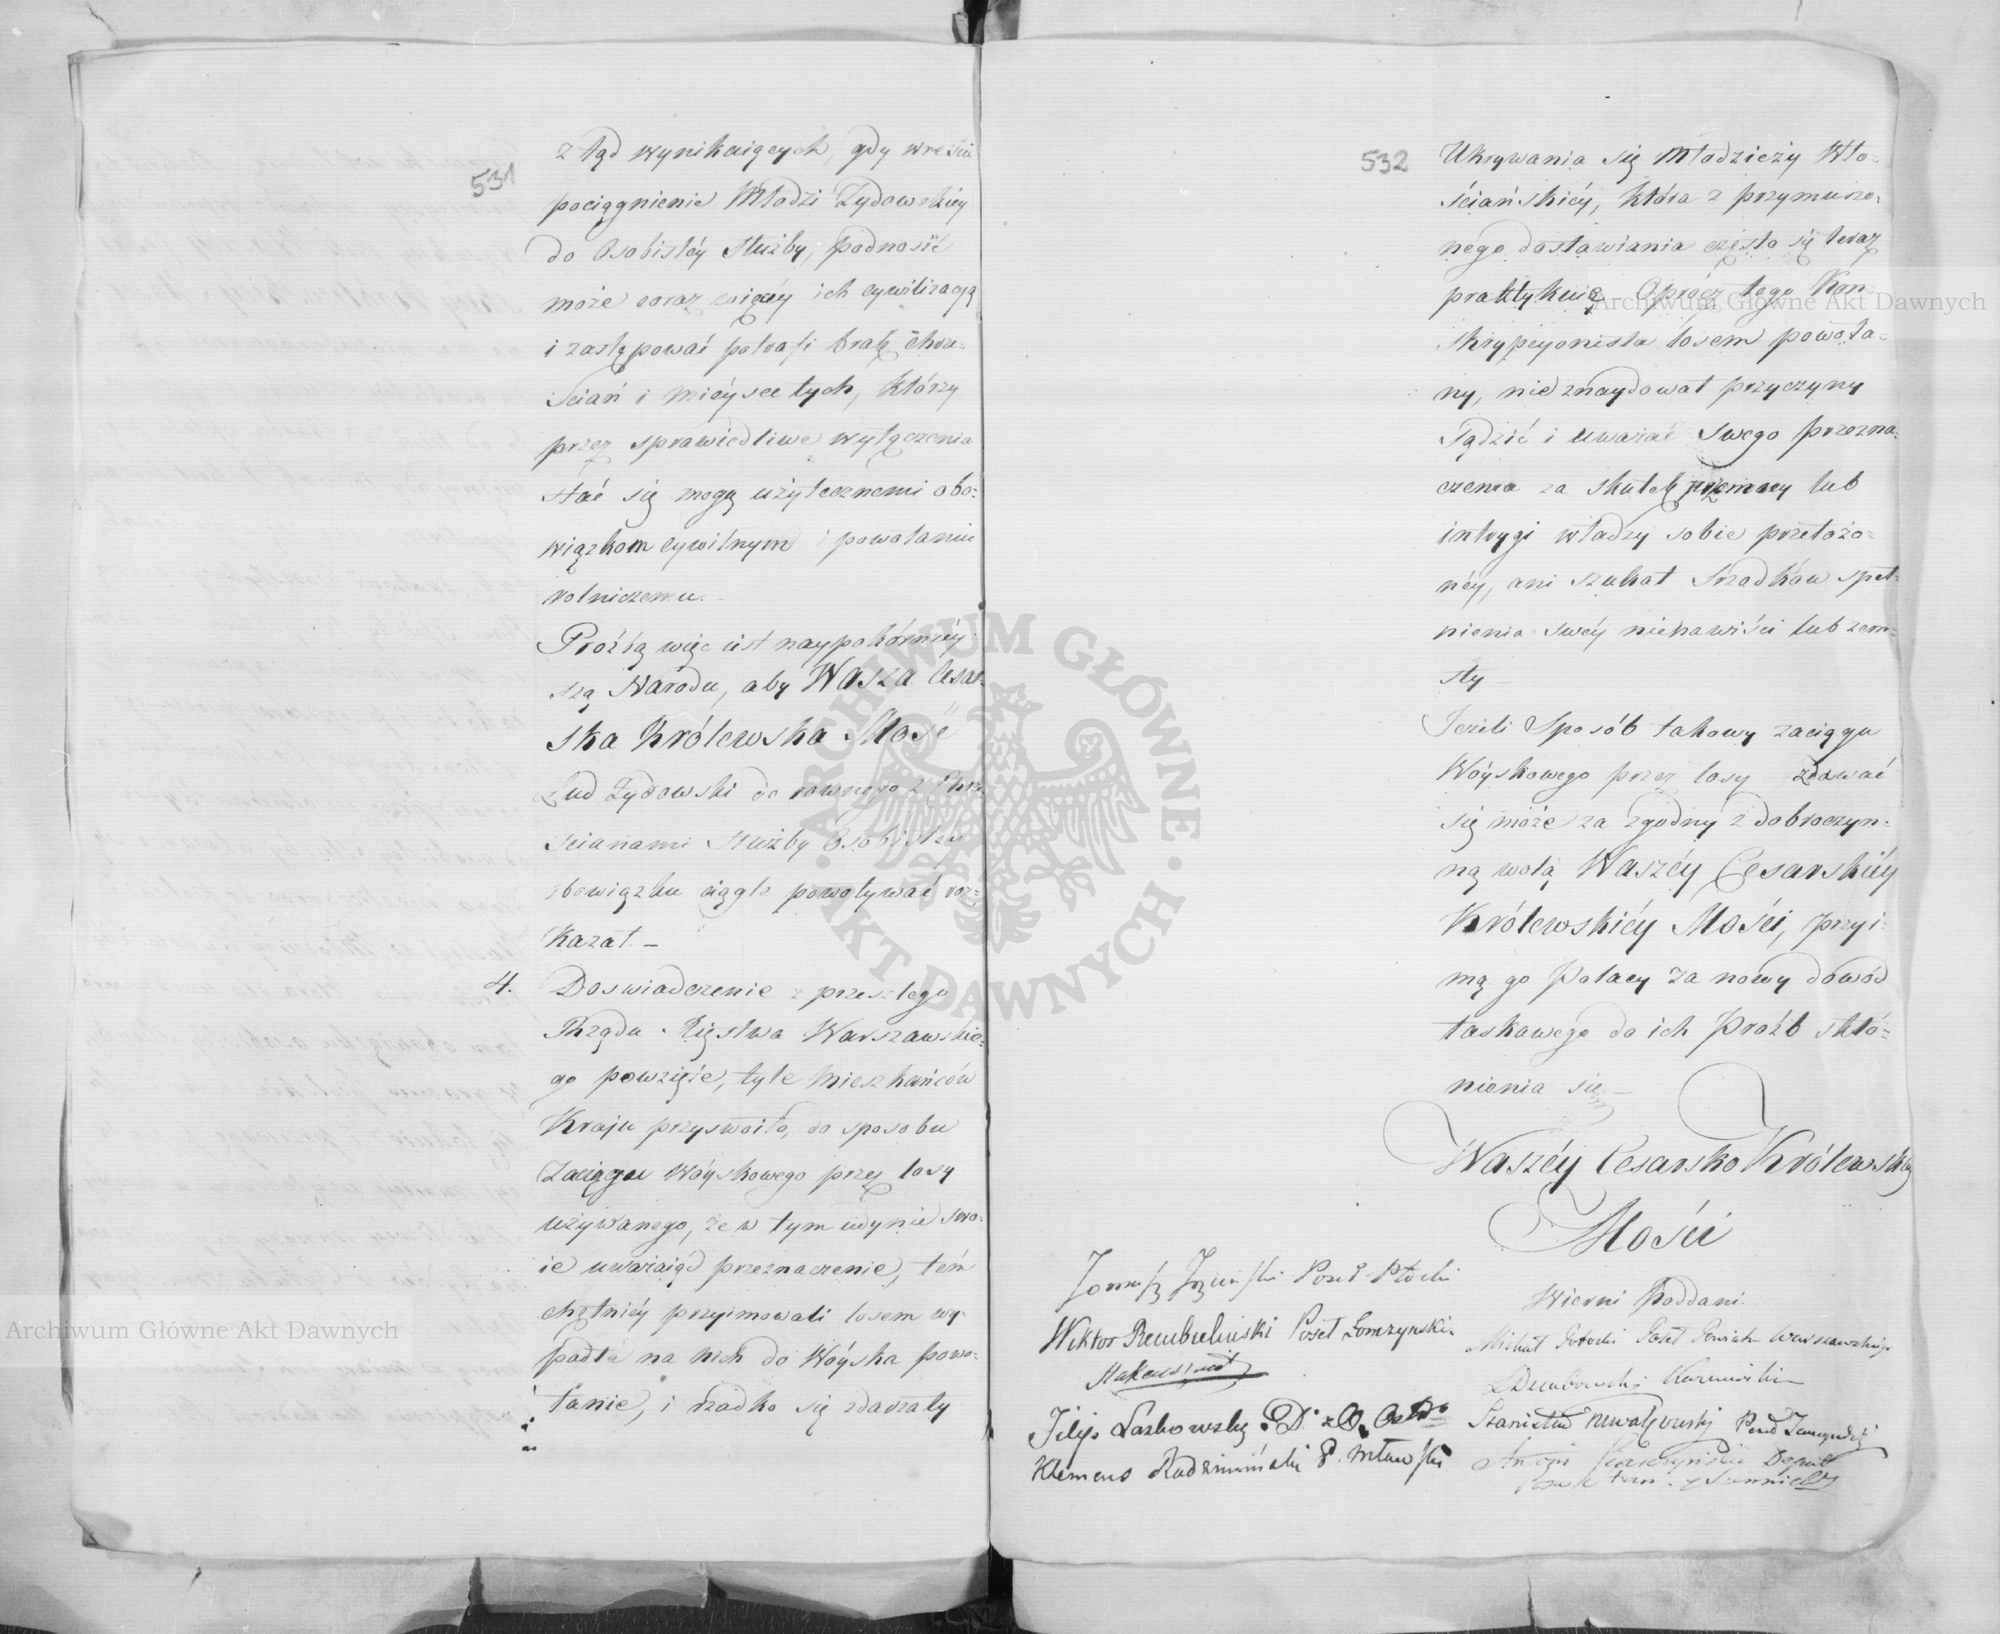 531
z tąd wynikaiących, gdy wreście
pociągnienie Młodzi Żydowskiéy
do Osobistéy Służby, podnosić
może coraz więcéy ich cywilizacyą
i zastępować potrafi brak chrze-
ścian i mieysce tych, którzy
przez sprawiedliwe wyłączenia
stać się mogą użytecznemi obo-
wiązkom cywilnym i powołaniu
rolniczemu. –
Proźbą więc iest naypokórniéy-
szą Narodu, aby Wasza Cesar-
ska Królewska Mość
Lud Żydowski do rownego z Chrze-
ścianami Służby Osobistey
obowiązku ciągle powoływać roz-
kazał. –
4. Doswiadczenie z przeszłego
Rządu Xięstwa Warszawskie-
go powzięte, tyle Mieszkańców
Kraju przyswoiło, do sposobu
Zaciągu Wóyskowego przez losy
używanego, że w tym iedynie swo-
ie uważaiąc przeznaczenie, tém
chętniéy przyimowali losem wy-
padłe na nich do Wóyska powo-
łanie, i rzadko się zdarzały
532
Ukrywania się Młodzieży Wło-
ściańskiéy, która z przymuszo-
nego dostawiania często się teraz
praktykuie. Oprócz tego Kon-
skrypcyonista losem powoła-
ny, nie znaydował przyczyny
Sądzić i uważać swego przezna-
czenia za skutek przemocy lub
intrygi władzy sobie przełożo-
néy, ani szukał Srzodków speł-
nienia swéy nienawiści lub zem-
sty –
Jeżeli Sposób takowy zaciągu
Wóyskowego przez losy zdawać
się może za zgodny z dobroczyn-
ną wolą Waszéy Cesarskiéy
Królewskiéy Mości, przyi-
mą go Polacy za nowy dowód
łaskawego do ich Próźb skło-
nienia się. –
Waszéy Cesarsko Królewskiéy
Mości
Wierni Poddani.
Poseł Płocki
Wiktor Rembieliński Poseł Łomzynski
Michał Potocki Poseł Powiatu Warszawskiego
Klemens Radzimiński P. Mławski
Stanisław
Antoni Deput
Archiwum Główne Akt Dawnych
Archiwum Główne Akt Dawnych
ARCHIWUM GŁÓWNE · AKT DAWNYCH ·